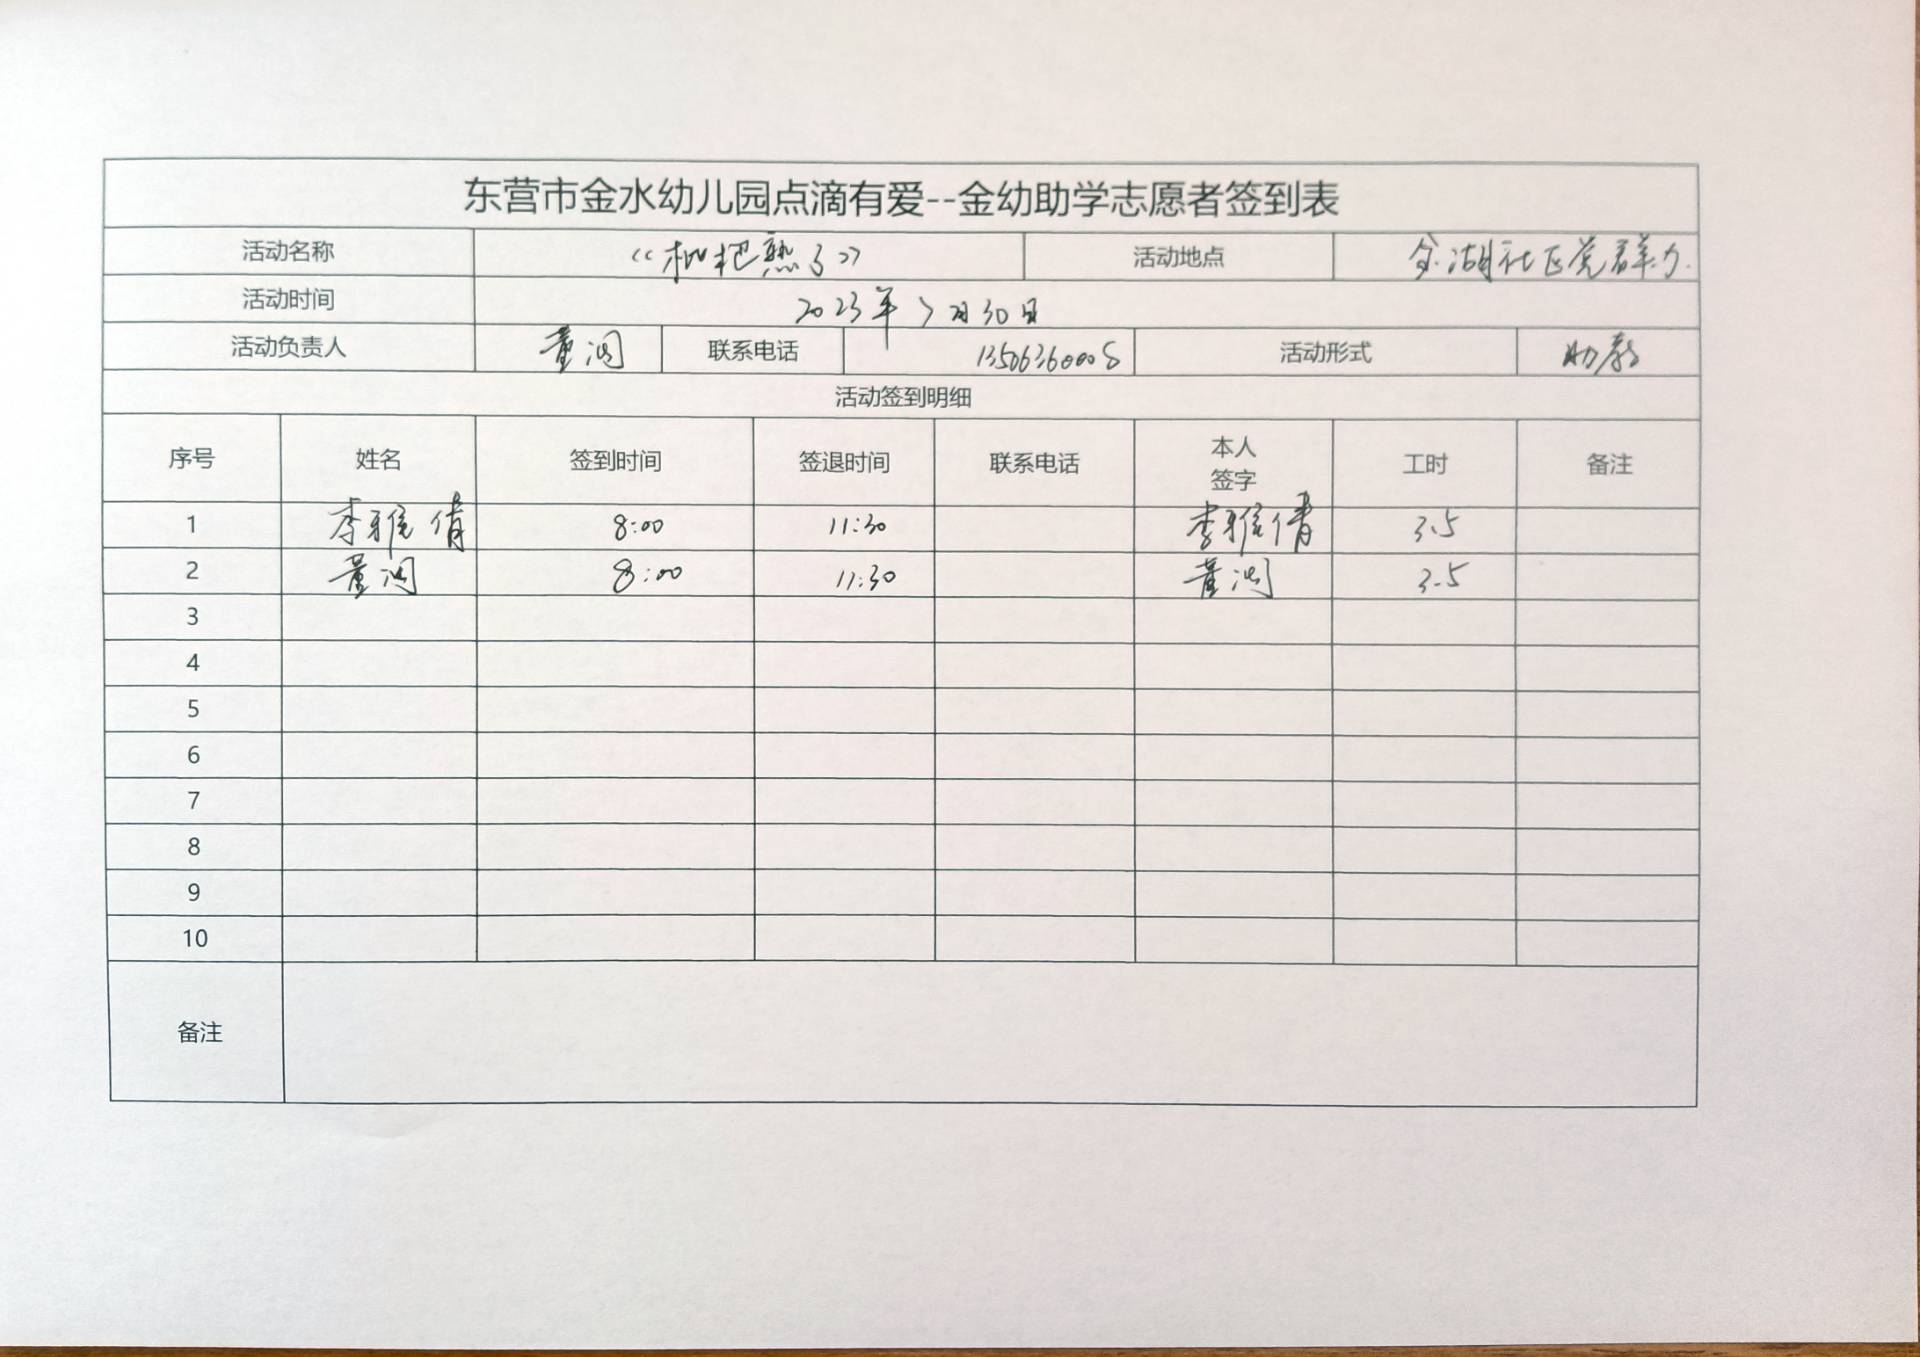 东营市金水幼儿园点滴有爱--金幼助学志愿者签到表
活动名称 《枇杷熟了》 活动地点 金湖社区党群办
活动时间 2023年 月30日
活动负责人 董润 联系电话 13506360008 活动形式 助教
活动签到明细
序号 姓名 签到时间 签退时间 联系电话 本人签字 工时 备注
1 李雅倩 8:00 11:30 李雅倩 3.5
2 董润 8:00 11:30 董润 3.5
3
4
5
6
7
8
9
10
备注